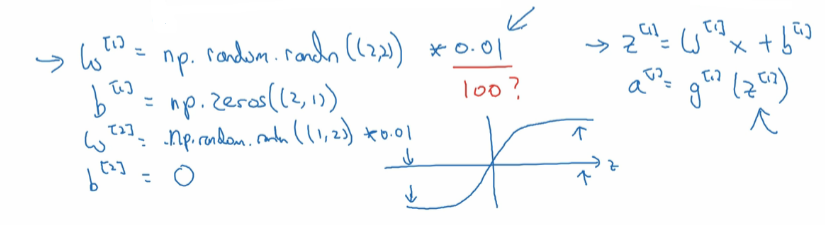 → W^[1] = np.random.randn((2,2)) * 0.01
100?
b^[1] = np.zeros((2,1))
W^[2] = np.random.randn((1,2)) * 0.01
b^[2] = 0
→ z^[1] = W^[1] x + b^[1]
a^[1] = g^[1](z^[1])
z